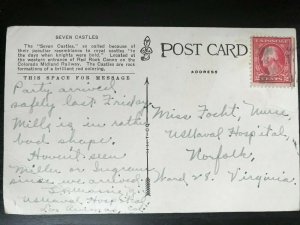 SEVEN CASTLES
The "Seven Castles," so called because of
their peculiar resemblance to royal castles "in
the days when knights were bold." Located at
the western entrance of Red Rock Canon on the
Colorado Midland Railway. The Castles are rock
formations of a brilliant red coloring.
THIS SPACE FOR MESSAGE
POST CARD
ADDRESS
Party arrived
safely last Friday.
Mills is in rather
bad shape.
Haven't seen
Miller or Ingram
since we arrived.
U.S. Naval Hospital
Las Animas, Col.
Miss Focht, Nurse,
US Naval Hospital,
Norfolk,
Ward 28. Virginia.